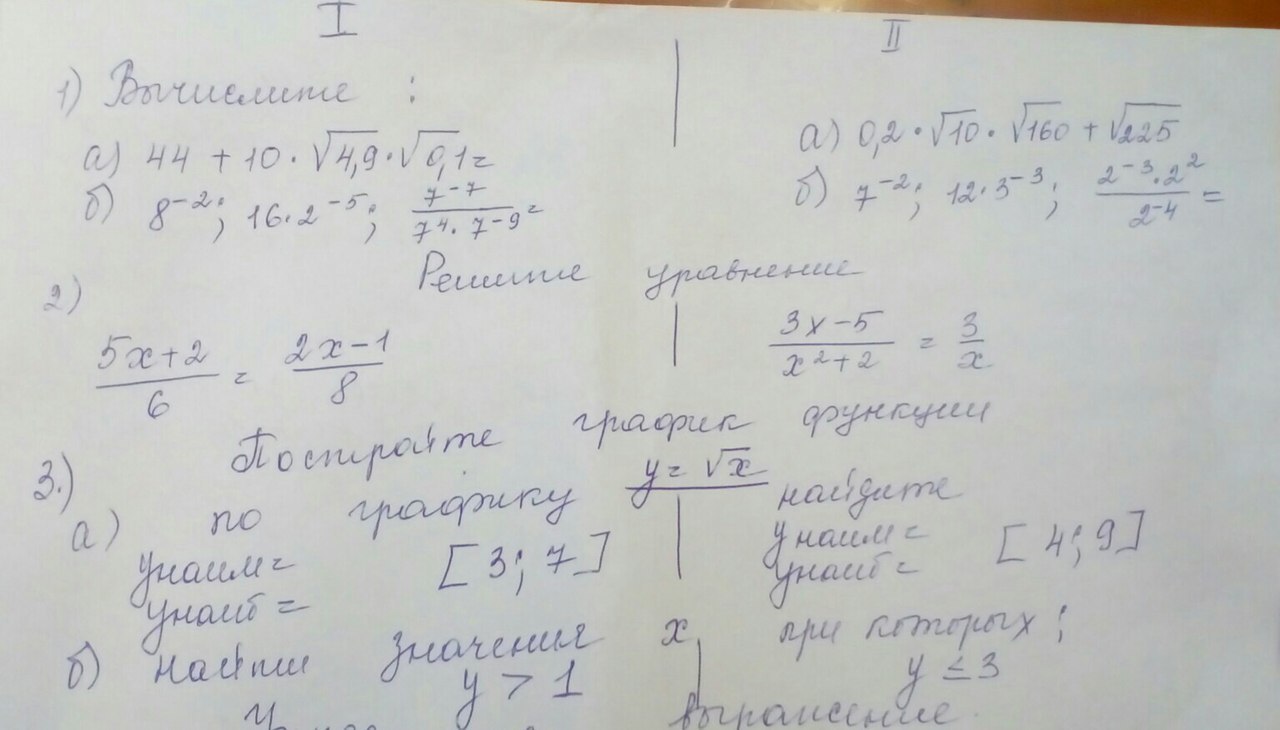 I II
1) Вычислите :
а) 44 + 10 · √4,9 · √0,1 = а) 0,2 · √10 · √160 + √225
б) 8⁻²; 16·2⁻⁵; 7⁻⁷/(7⁴·7⁻⁹) = б) 7⁻²; 12·3⁻³; (2⁻³·2²)/2⁻⁴ =
Решите уравнение
2) (5x+2)/6 = (2x−1)/8 (3x−5)/(x²+2) = 3/x
3.) Постройте график функции
y = √x
а) по графику найдите
yнаим= [3; 7] yнаим= [4; 9]
yнаиб= yнаиб=
б) найти значения x, при которых:
y > 1 y ≤ 3
выражение